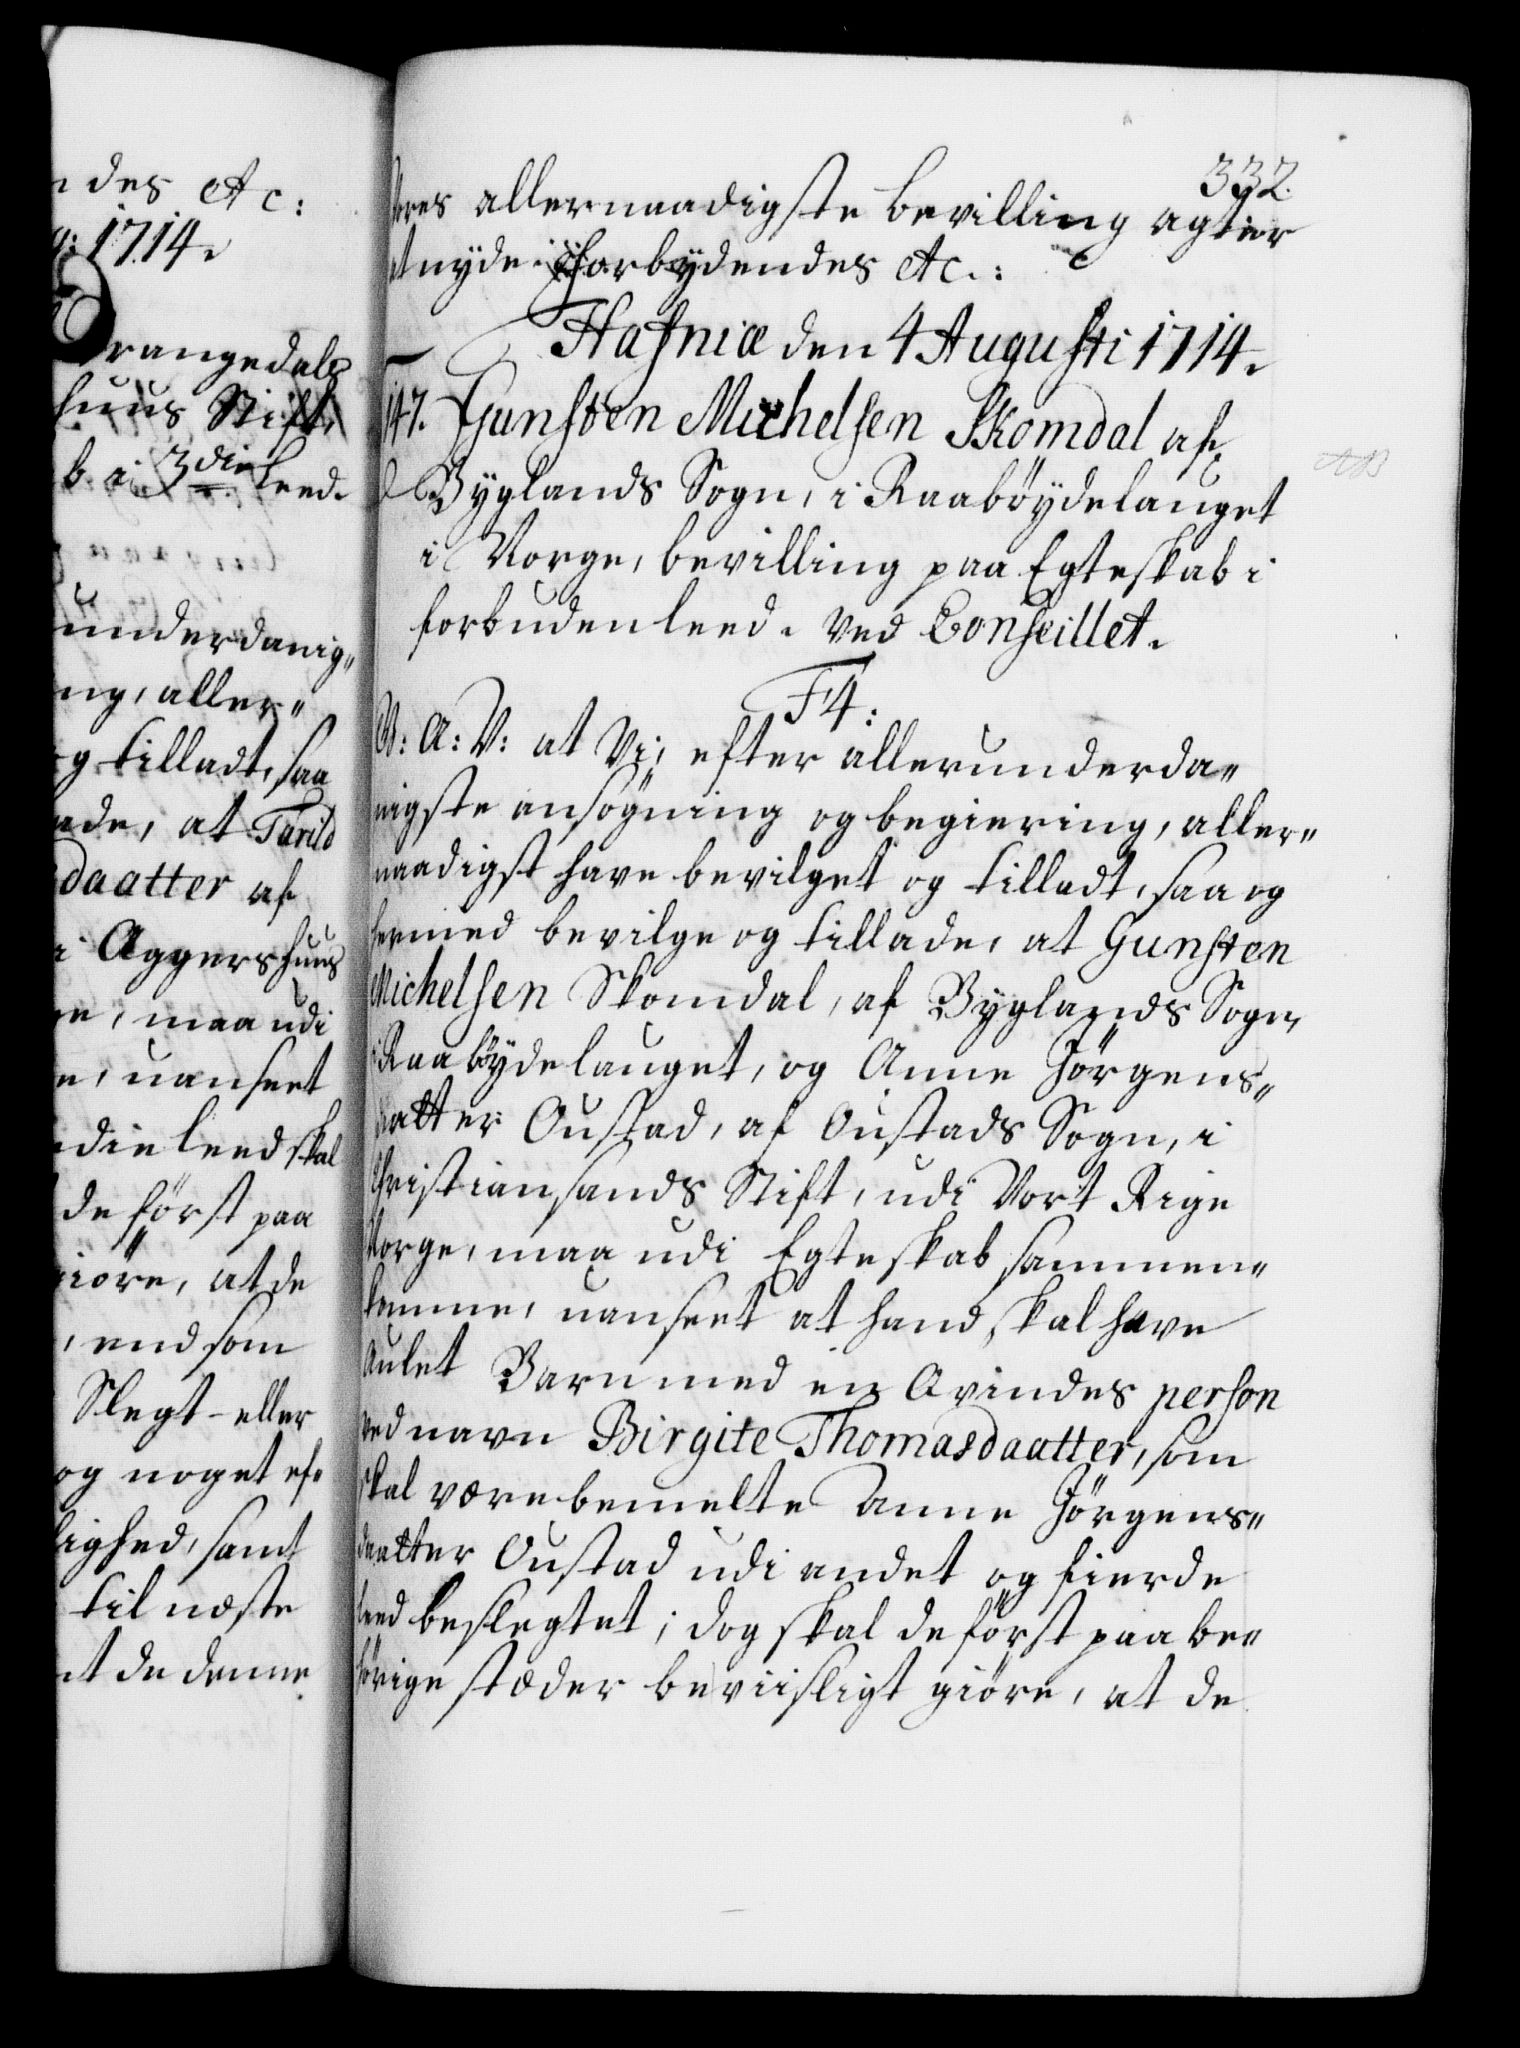 ndes Etc:
g: 1714.
rangedals
huus Stift,
b i 3die Leed.
underdanig„
ng, aller„
og tilladt, saa
ade, at Tarild
daatter af
i Aggershuus
ge, maa udi
e, uanseet
edie leed skal
de först paa
giöre, at de
, end som
Slegt- eller
og noget ef„
lighed, samt
til næste
at de denne
332.
Vores allernaadigste bevilling agter
at nyde. Forbydendes Etc.:
Hafniæ den 4 Augusti 1714.
147. Gunsten Michelsen Skomdal af
Byglands Sogn, i Raaböydelauget
i Norge, bevilling paa Egteskab i
forbuden leed. Ved Conseillet.
F4:
G: A: V: at Vi, efter allerunderda„
nigste ansögning og begiering, aller„
naadigst have bevilget og tilladt, saa og
hermed bevilge og tillade, at Gunsten
Michelsen Skomdal, af Byglands Sogn,
i Raaböydelauget, og Anne Jörgens„
datter Oustad, af Oustads Sogn, i
Christiansands Stift, udi Vort Rige
Norge, maa udi Egteskab sammen„
komme, uanseet at hand skal have
aulet Barn med en Qvindes person
ved navn Birgite Thomasdaatter, som
skal være bemelte Anne Jörgens„
daatter Oustad udi andet og fierde
leed beslegtet; dog skal de först paa be„
hörige stæder beviisligt giöre, at de